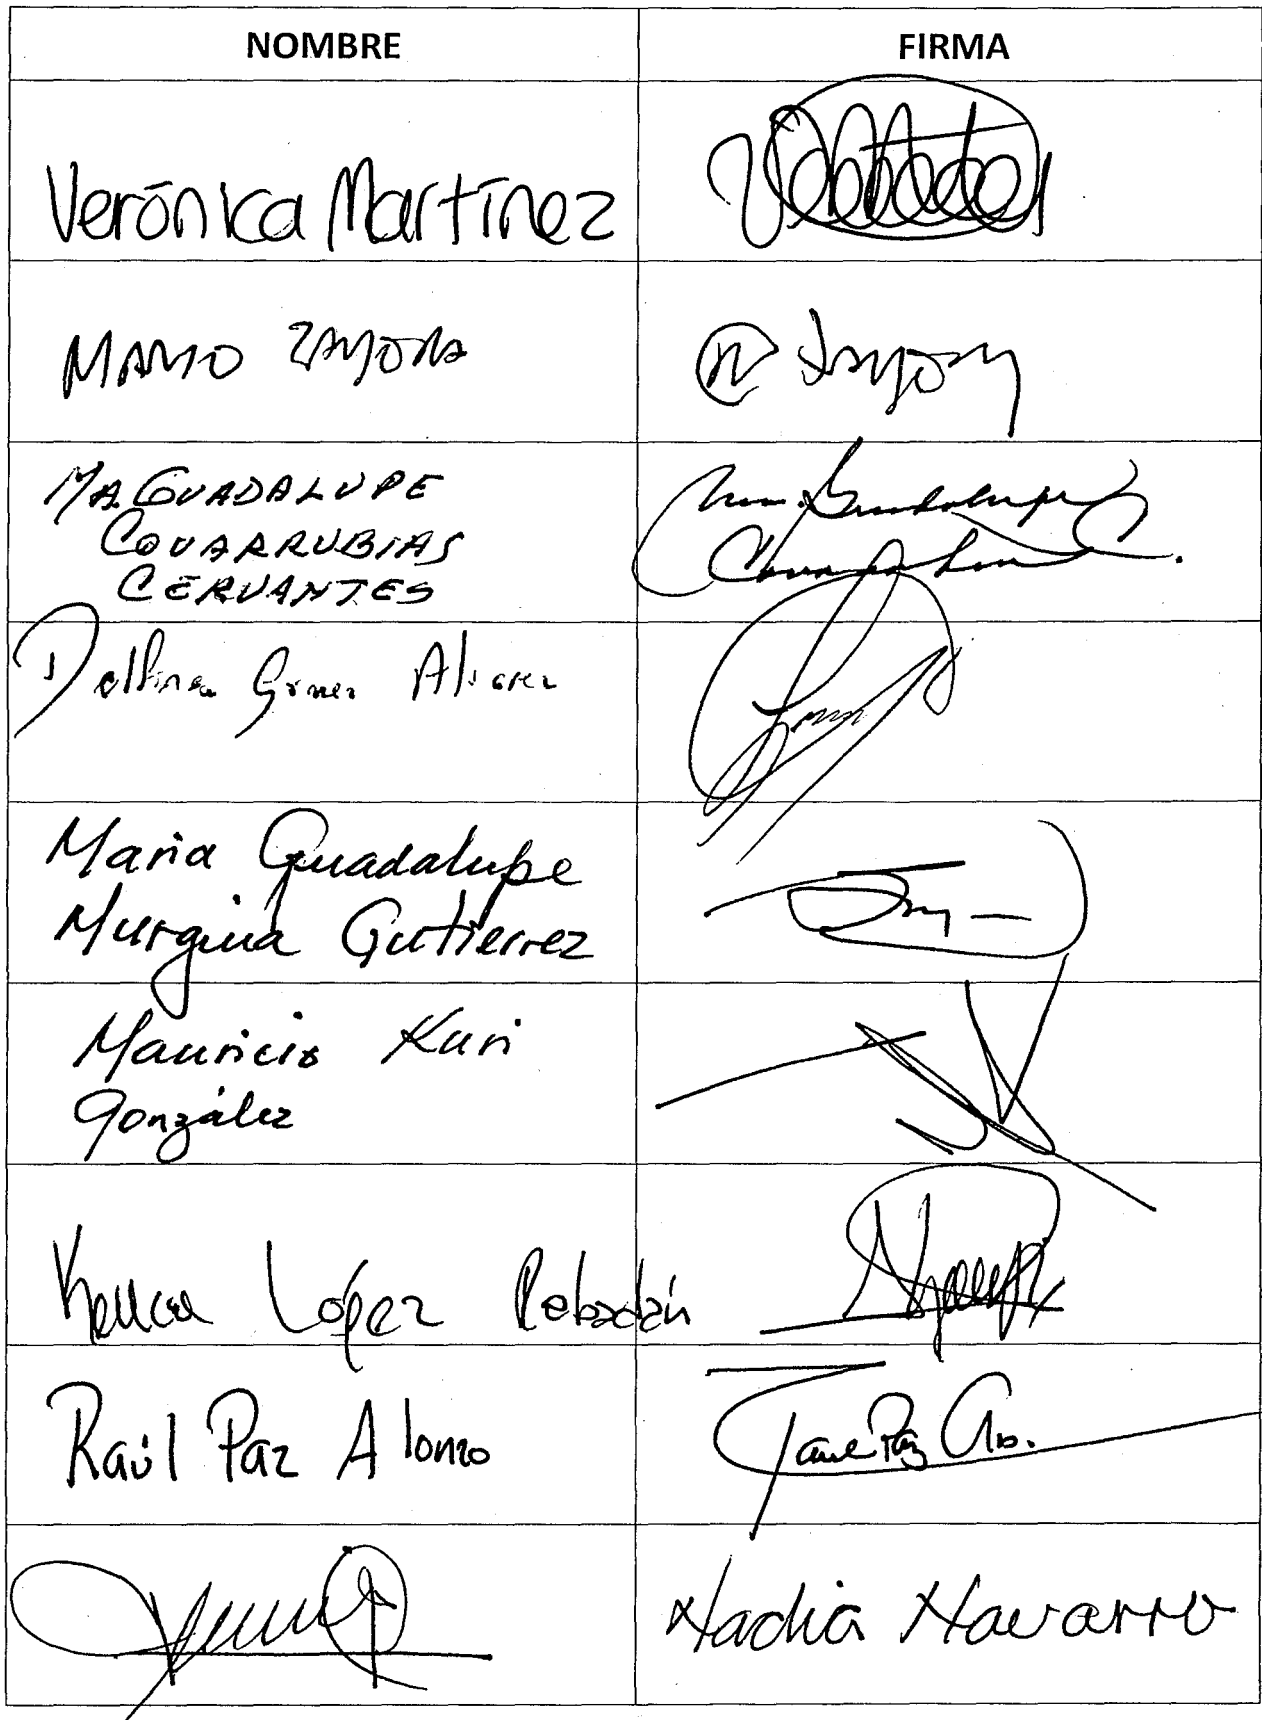 NOMBRE FIRMA
Verónica Martínez
MARIO ZAMORA
MA. GUADALUPE
COVARRUBIAS
CERVANTES
Ma. Guadalupe
Covarrubias C.
Delfina Gómez Alvarez
Maria Guadalupe
Murguia Gutierrez
Mauricio Kuri
González
Kenia López Rabadán
Raúl Paz Alonzo
Raul Paz Alo.
Nadia Navarro